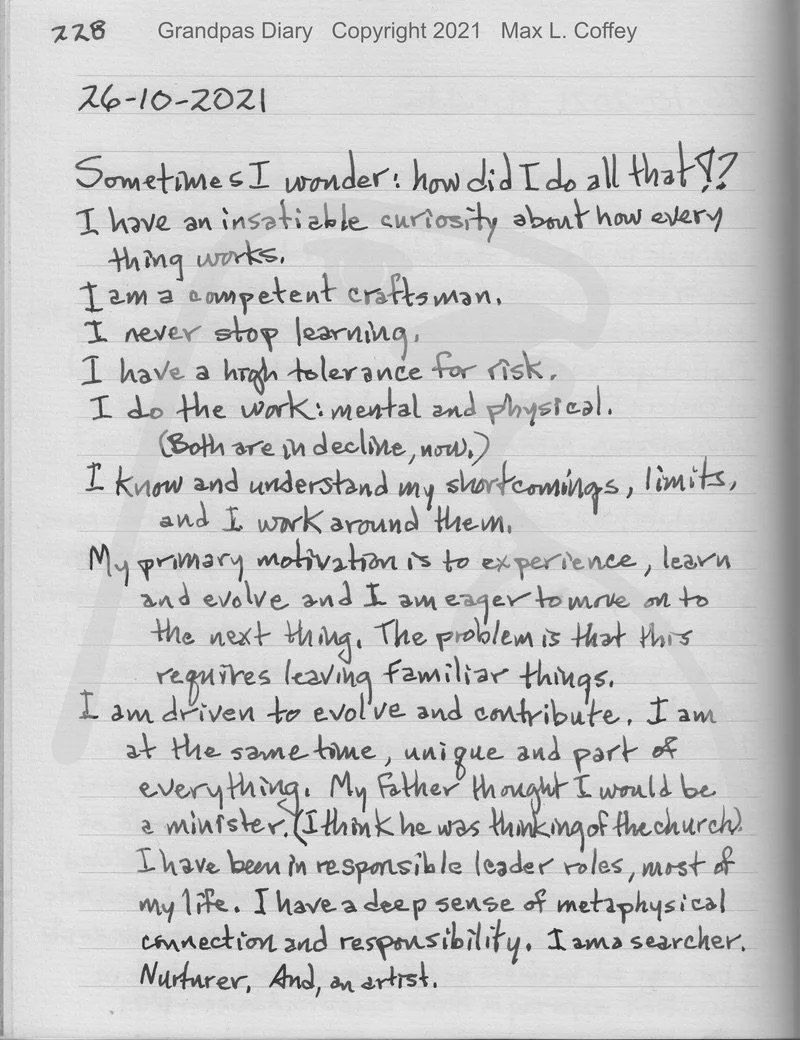 228 Grandpas Diary Copyright 2021 Max L. Coffey
26-10-2021
Sometimes I wonder: how did I do all that!?
I have an insatiable curiosity about how every
thing works.
I am a competent craftsman.
I never stop learning.
I have a high tolerance for risk.
I do the work: mental and physical.
(Both are in decline, now.)
I know and understand my shortcomings, limits,
and I work around them.
My primary motivation is to experience, learn
and evolve and I am eager to move on to
the next thing. The problem is that this
requires leaving familiar things.
I am driven to evolve and contribute. I am
at the same time, unique and part of
everything. My Father thought I would be
a minister. (I think he was thinking of the church).
I have been in responsible leader roles, most of
my life. I have a deep sense of metaphysical
connection and responsibility. I am a searcher.
Nurturer. And, an artist.